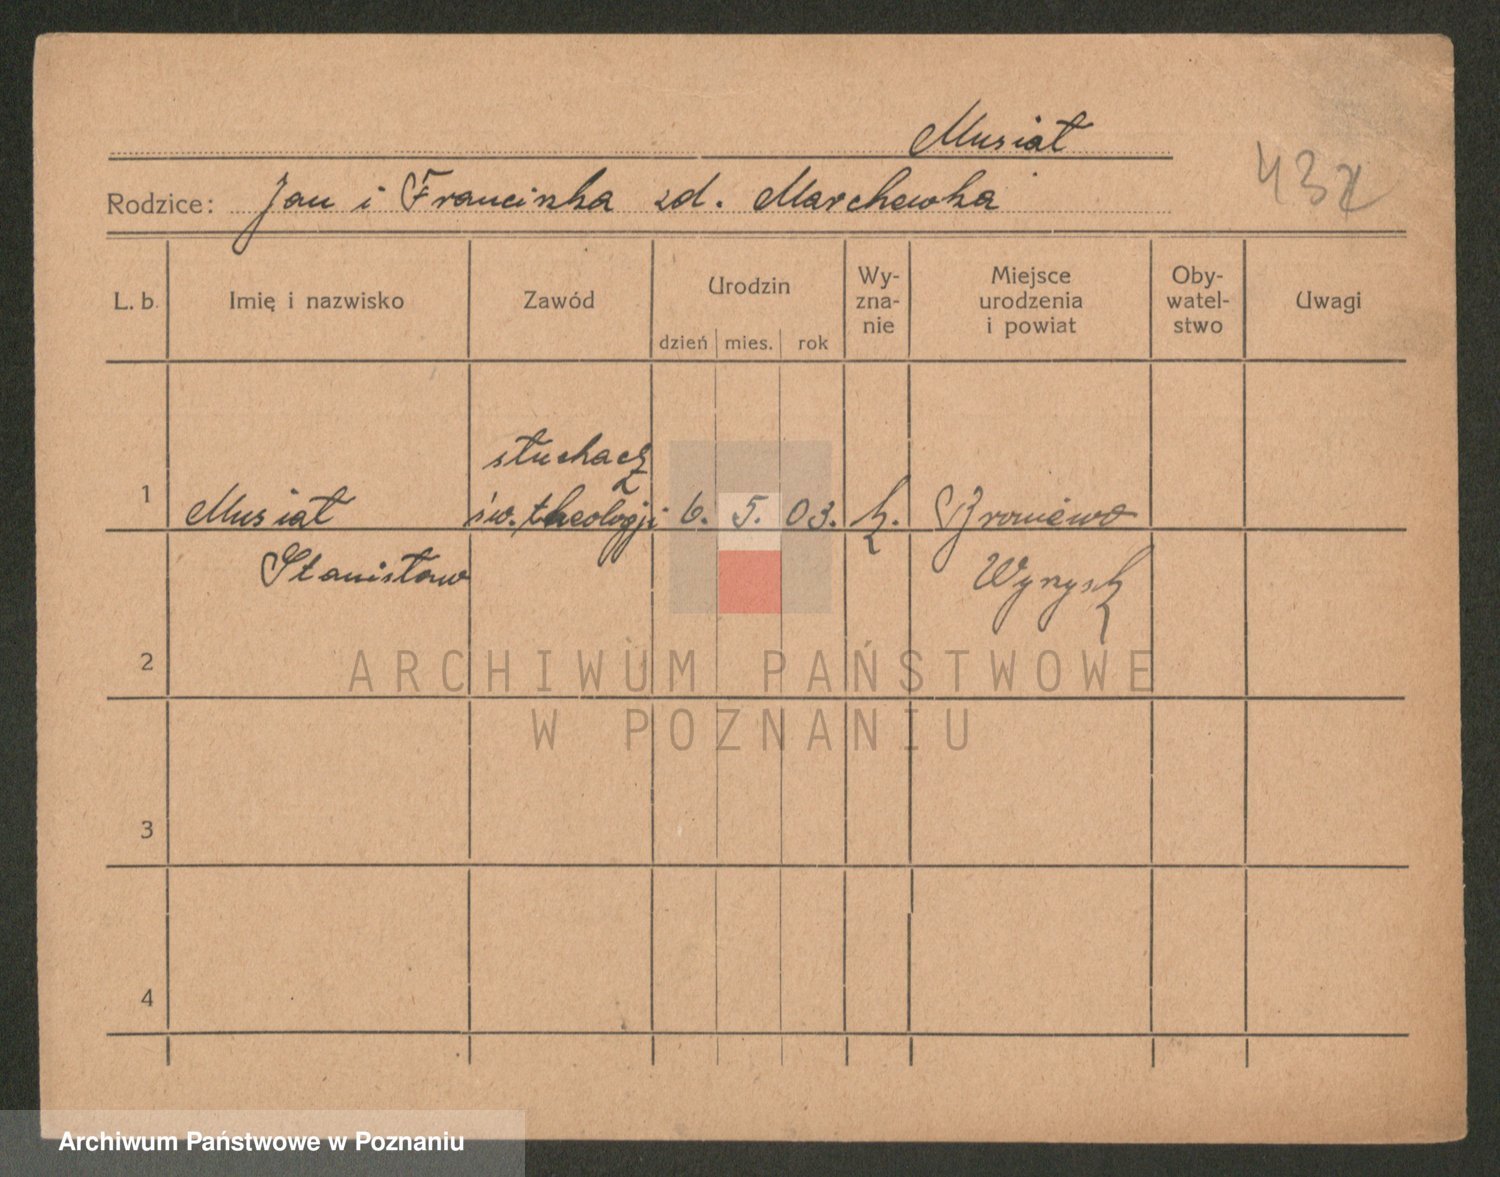 Musiał
Rodzice: Jan i Franciszka zd. Marchewka
L. b. Imię i nazwisko Zawód Urodzin dzień mies. rok Wy-zna-nie Miejsce urodzenia i powiat Oby-watel-stwo Uwagi
słuchacz
1 Musiał św. theologji 6. 5. 03. k. Broniewo
Stanisław Wyrzysk
2
ARCHIWUM PAŃSTWOWE
W POZNANIU
3
4
Archiwum Państwowe w Poznaniu